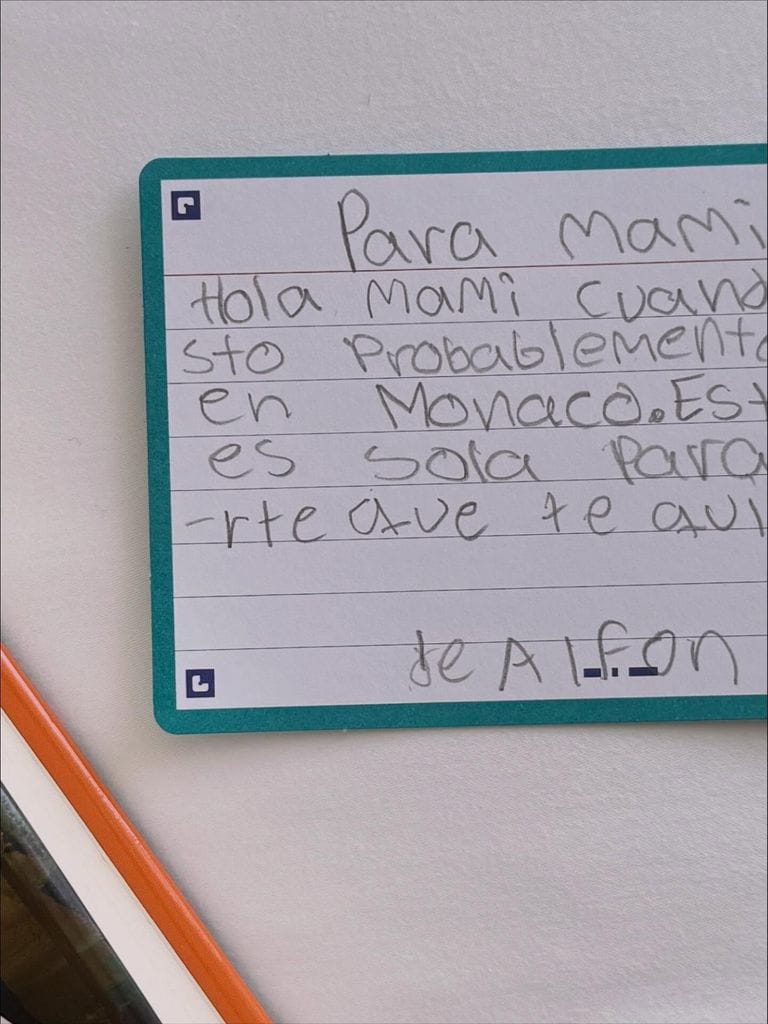 Para Mami
Hola Mami Cuand
sto Probablement
en Monaco. Est
es sola para
-rte que te qui
de Alfon